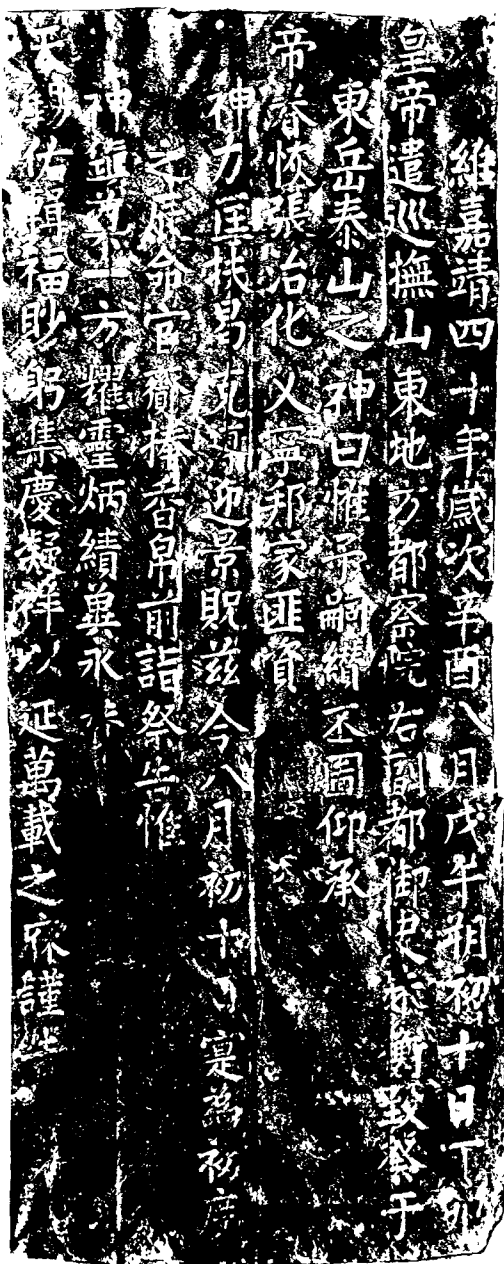 維嘉靖四十年歲次辛酉八月戊午朔初十日丁卯
皇帝遣巡撫山東地方都察院右副都御史衡致祭于
東岳泰山之神曰惟予嗣纘丕圖仰承
帝眷恢張治化乂寧邦家匪資
神力匡扶曷克迎景貺茲今八月初十日寔為初度
之辰命官捧香帛前詣祭告惟
神鎮一方耀靈炳績冀永
天佑福眇躬集慶凝祥以延萬載之庥謹